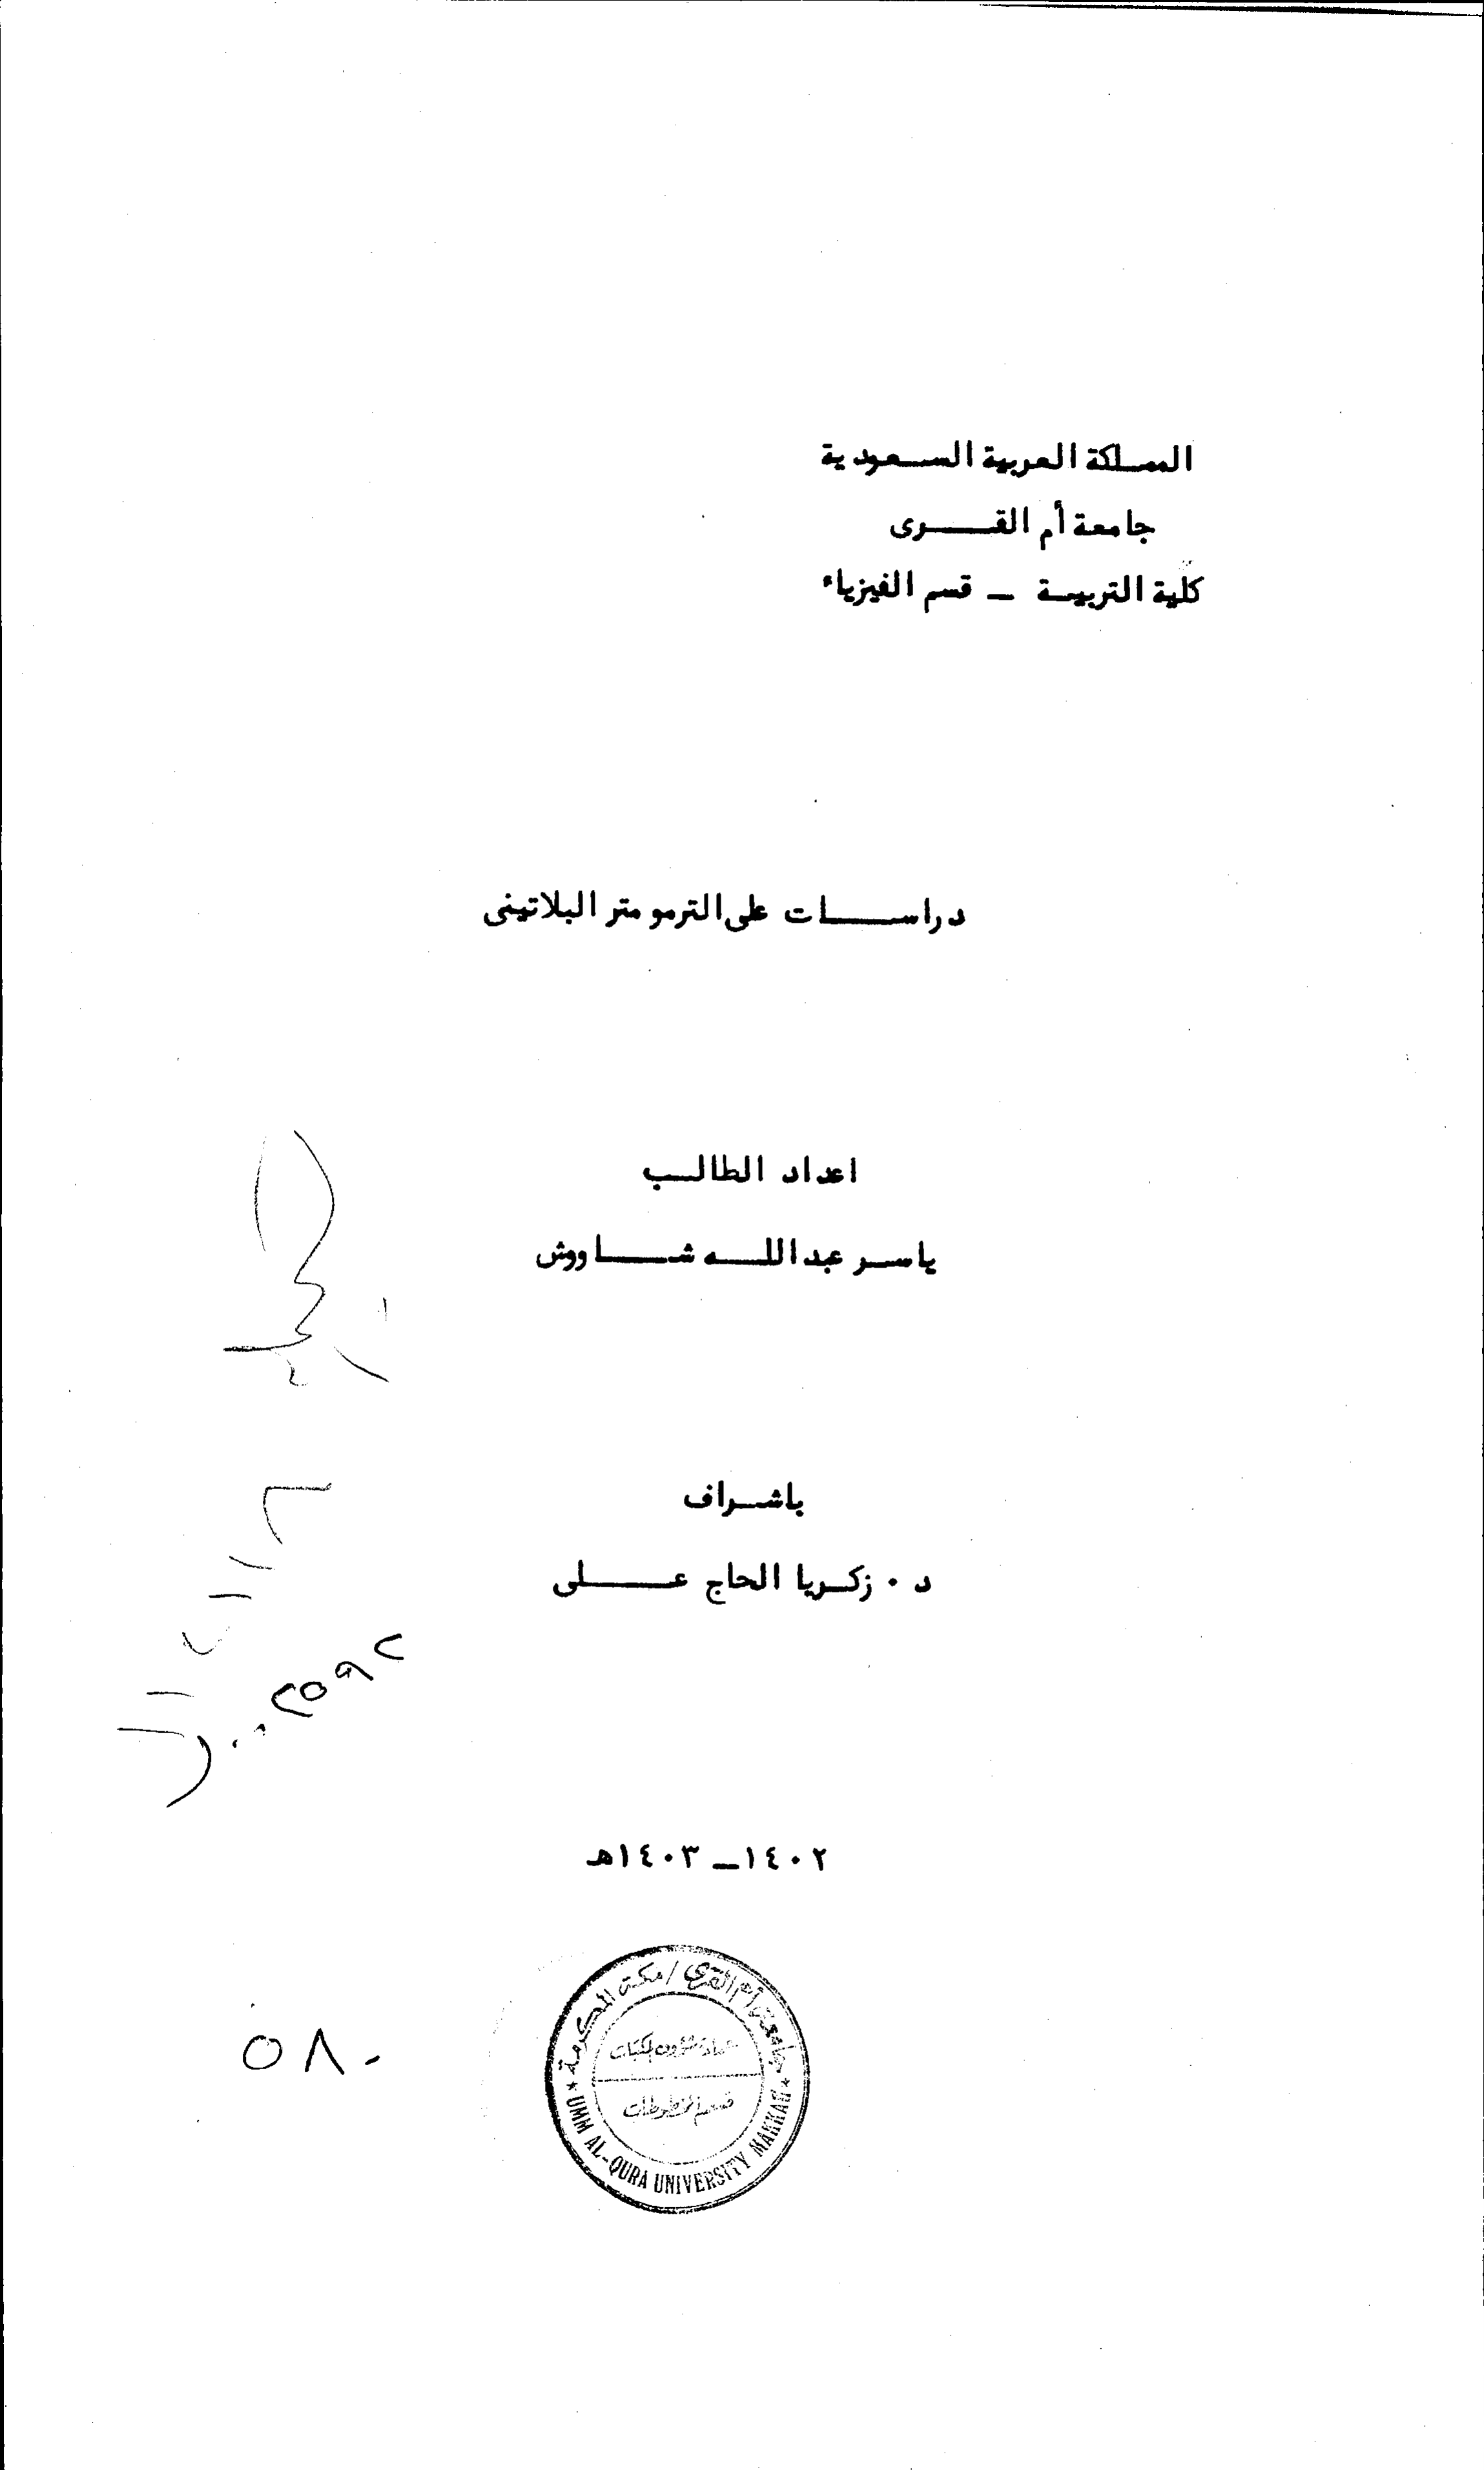 المملكة العربية السعودية
جامعة أم القرى
كلية التربية ـ قسم الفيزياء
دراسات على الترمومتر البلاتينى
اعداد الطالب
ياسر عبدالله شاووش
باشراف
د ٠ زكريا الحاج على
١٤٠٢ــ ١٤٠٣هـ
جامعة أم القرى / مكة المكرمة
عمادة شؤون المكتبات
قسم المخطوطات
UMM AL-QURA UNIVERSITY MAKKAH
٥٨٠